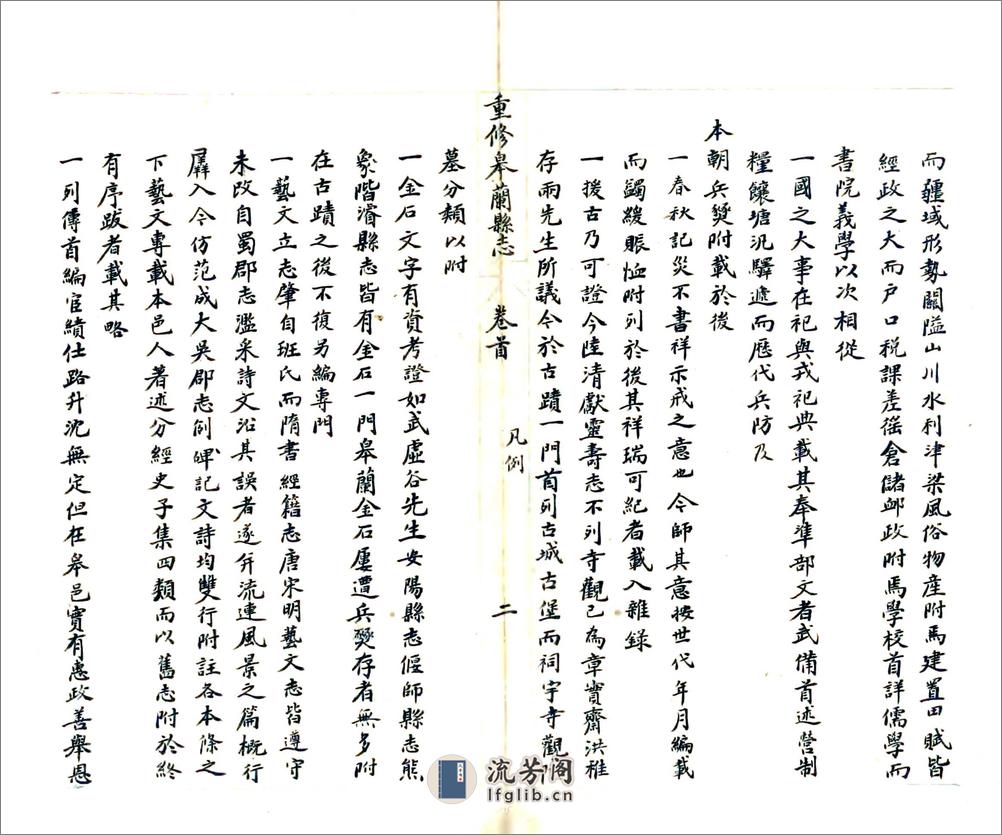 而疆域形勢關隘山川水利津梁風俗物産附焉建置田賦皆
經政之大而戶口稅課差徭倉儲郵政附焉學校首詳儒學而
書院義學以次相從
一國之大事在祀與戎祀典載其奉準部文者武備首述營制
糧饟塘汛驛遞而歷代兵防及
本朝兵燹附載於後
一春秋記災不書祥示戒之意也今師其意按世代年月編載
而蠲緩賑恤附列於後其祥瑞可紀者載入雜錄
一援古乃可證今陸清獻靈壽志不列寺觀已為章實齋洪稚
存兩先生所議今於古蹟一門首列古城古堡而祠宇寺觀
重修皋蘭縣志 卷首 凡例 二
墓分類以附
一金石文字有資考證如武虛谷先生安陽縣志偃師縣志熊
象階濬縣志皆有金石一門皋蘭金石屢遭兵燹存者無多附
在古蹟之後不復另編專門
一藝文立志肇自班氏而隋書經籍志唐宋明藝文志皆遵守
未改自蜀郡志濫采詩文沿其誤者遂幷流連風景之篇概行
羼入今仿范成大吳郡志例碑記文詩均雙行附註各本條之
下藝文專載本邑人著述分經史子集四類而以舊志附於終
有序跋者載其略
一列傳首編宦績仕路升沈無定但在皋邑實有惠政善舉恩
流芳阁
lfglib.cn